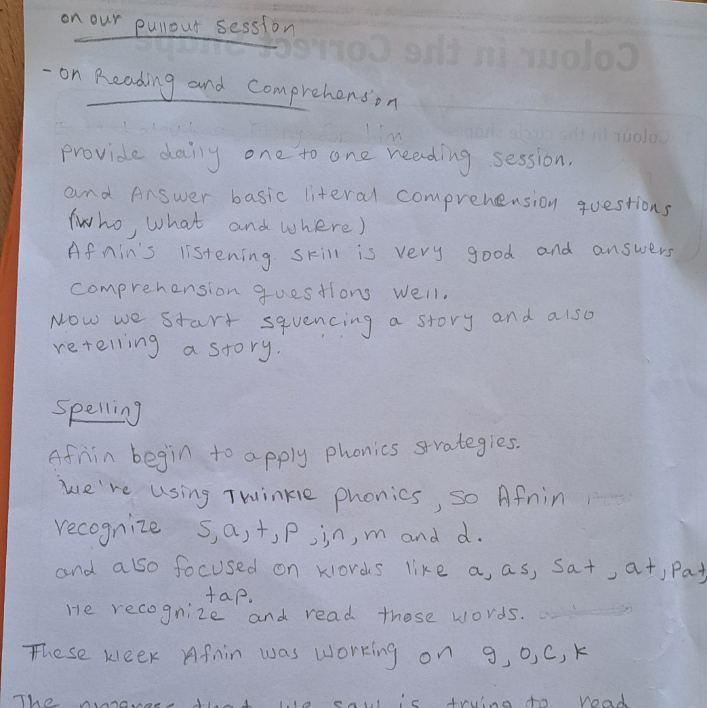 on our pullout session
- on Reading and Comprehension
Provide daily one to one reading session.
and Answer basic literal comprehension questions
(who, what and where)
Afnin's listening skill is very good and answers
comprehension questions well.
Now we start squencing a story and also
retelling a story.
Spelling
Afnin begin to apply phonics strategies.
We're using Twinkle phonics, so Afnin
recognize s, a, t, p, i, n, m and d.
and also focused on words like a, as, sat, at, pat,
tap.
He recognize and read those words.
These week Afnin was working on g, o, c, k
The progress that we saw is trying to read
Colour in the Correct Shape
Colour in the circle shapes